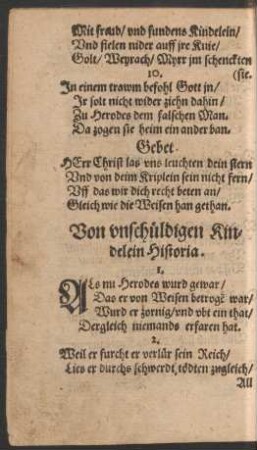 Mit freud/ vnd fundens Kindelein/
Vnd fielen nider auff jre Knie/
Golt/ Weyrach/ Myrr jm schenckten
10. (sie.
In einem trawm befohl Gott jn/
Ir solt nicht wider ziehn dahin/
Zu Herodes dem falschen Man.
Da zogen sie heim ein ander ban.
Gebet.
HErr Christ las vns leuchten dein stern
Vnd von deim Kriplein sein nicht fern/
Vff das wir dich recht beten an/
Gleich wie die Weisen han gethan.
Von vnschüldigen Kin-
delein Historia.
1.
ALs nu Herodes wurd gewar/
Das er von Weisen betrogē war/
Wurd er zornig/ vnd vbt ein that/
Dergleich niemands erfaren hat.
2.
Weil er furcht er verlür sein Reich/
Lies er durchs schwerdt tödten zugleich/
All